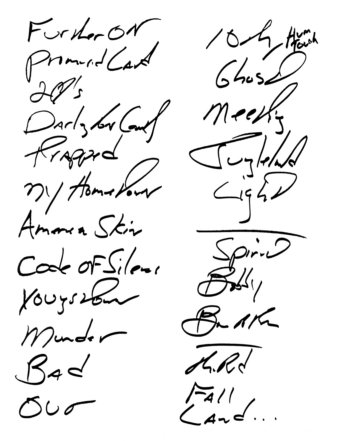 Further ON
Promised Land
2
Darling ton County
Trapped
My Hometown
America Skin
Code OF Silence
Youngstown
Murder
BAD
OUT
10th, Hum Touch
Ghost
Meeting
Jungleland
Light
Spirit
Bobby
Th. Rd
FALL
LAND...